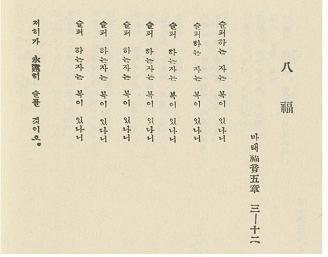 八 福
마태福音五章 三—十二
슬퍼 하는자는 복이 있나니
슬퍼 하는자는 복이 있나니
슬퍼 하는자는 복이 있나니
슬퍼 하는자는 복이 있나니
슬퍼 하는자는 복이 있나니
슬퍼 하는자는 복이 있나니
슬퍼 하는자는 복이 있나니
저히가 永遠히 슬플 것이오。